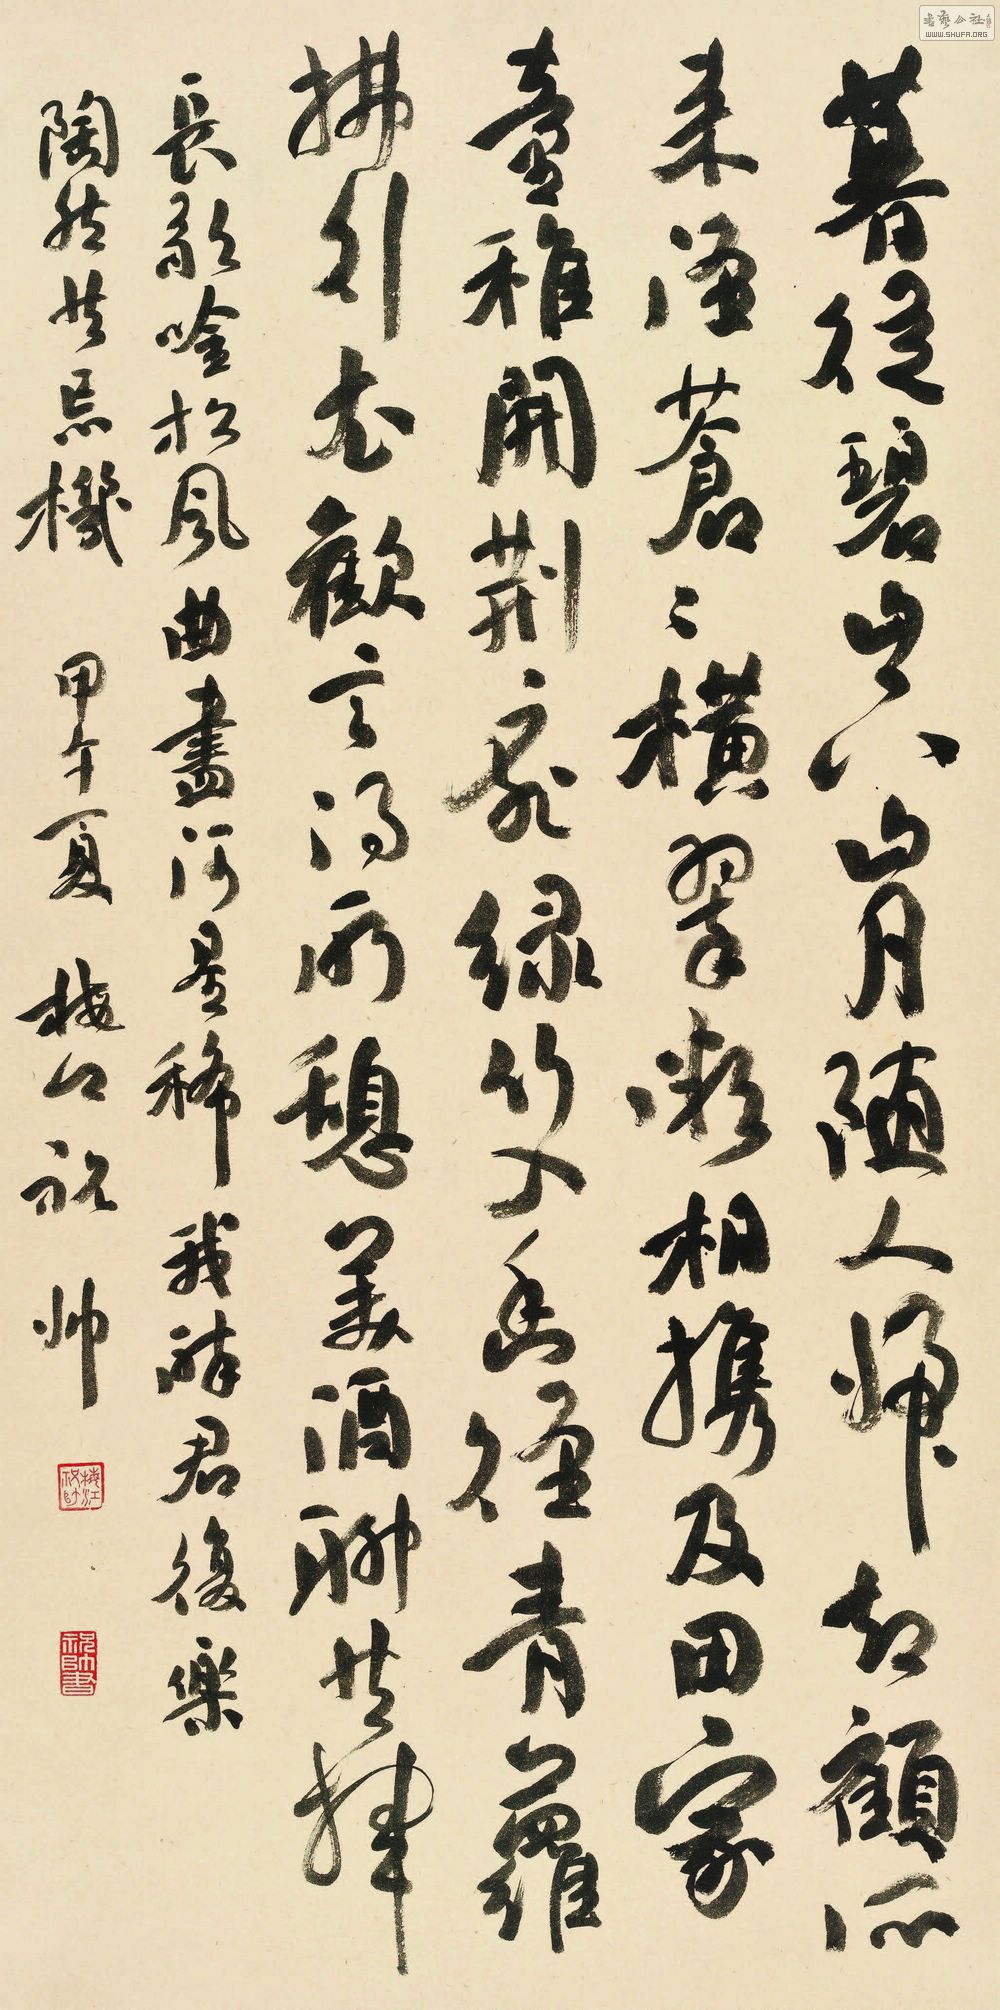 暮從碧山下山月随人歸却顧所
来徑蒼〻橫翠微相攜及田家
童稚開荊扉綠竹入幽徑青蘿
拂行衣歡言得所憩美酒聊共揮
長歌吟松風曲盡河星稀我醉君復樂
陶然共忘機 甲午夏 梅江祝帥
梅江祝帥
祝帥書
書藝公社
WWW.SHUFA.ORG